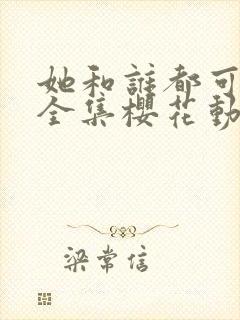 她和誰都可
全集櫻花動
梁常信